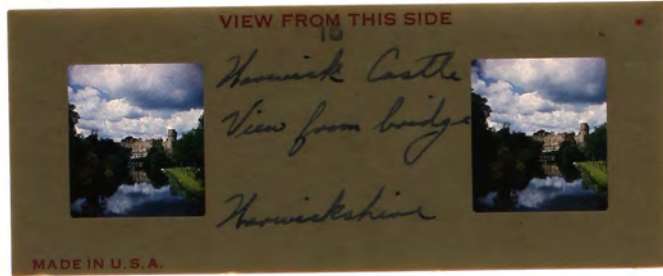 VIEW FROM THIS SIDE
18
Warwick Castle
View from bridge
Warwickshire
MADE IN U.S.A.